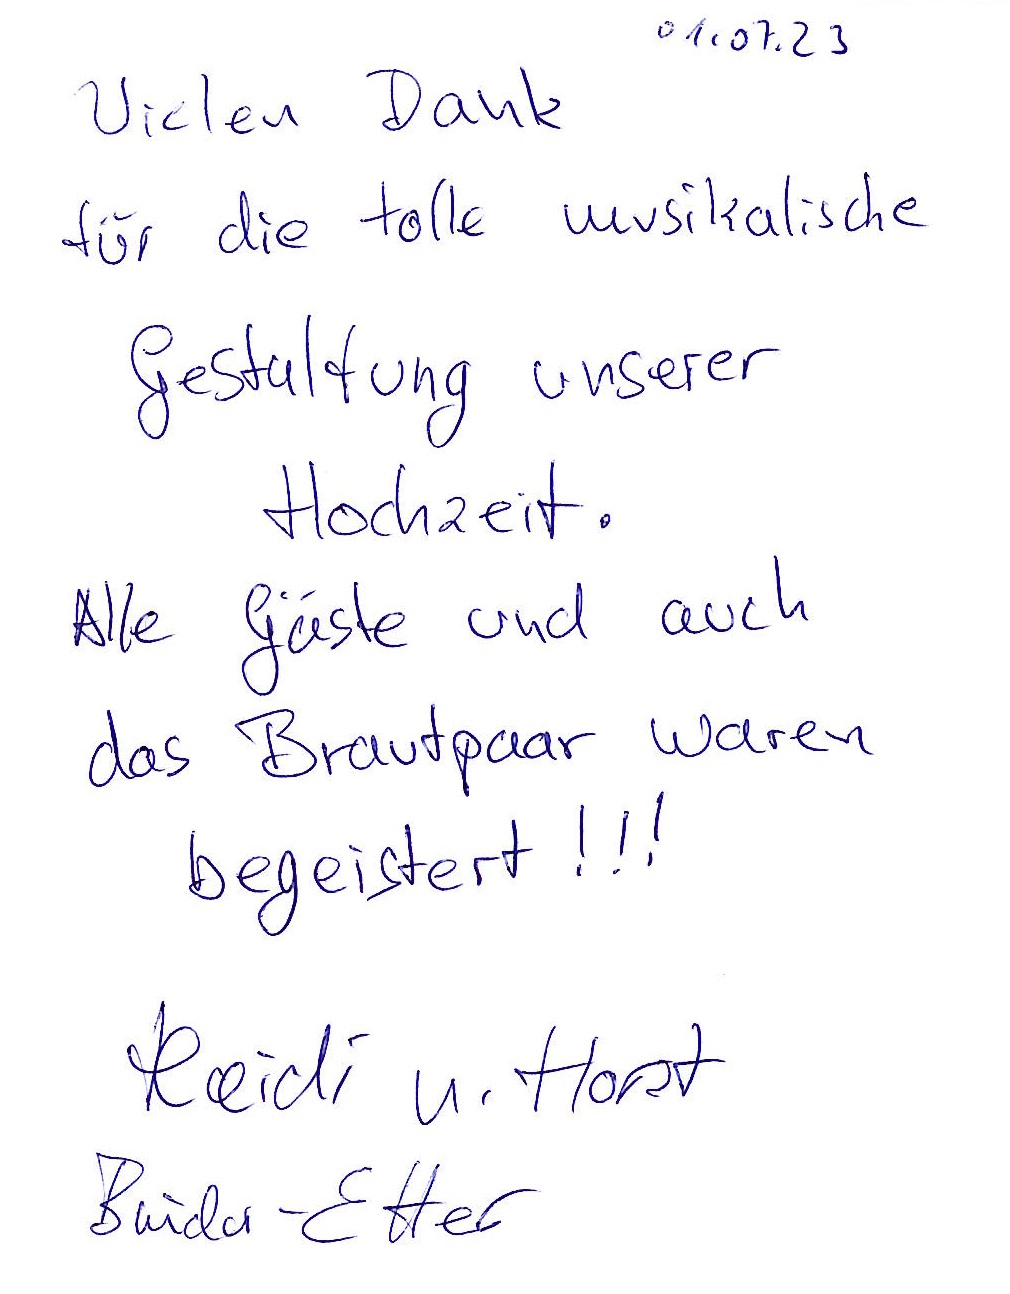 01.07.23
Vielen Dank
für die tolle musikalische
Gestaltung unserer
Hochzeit.
Alle Gäste und auch
das Brautpaar waren
begeistert!!!
Heidi u. Horst
-Etter